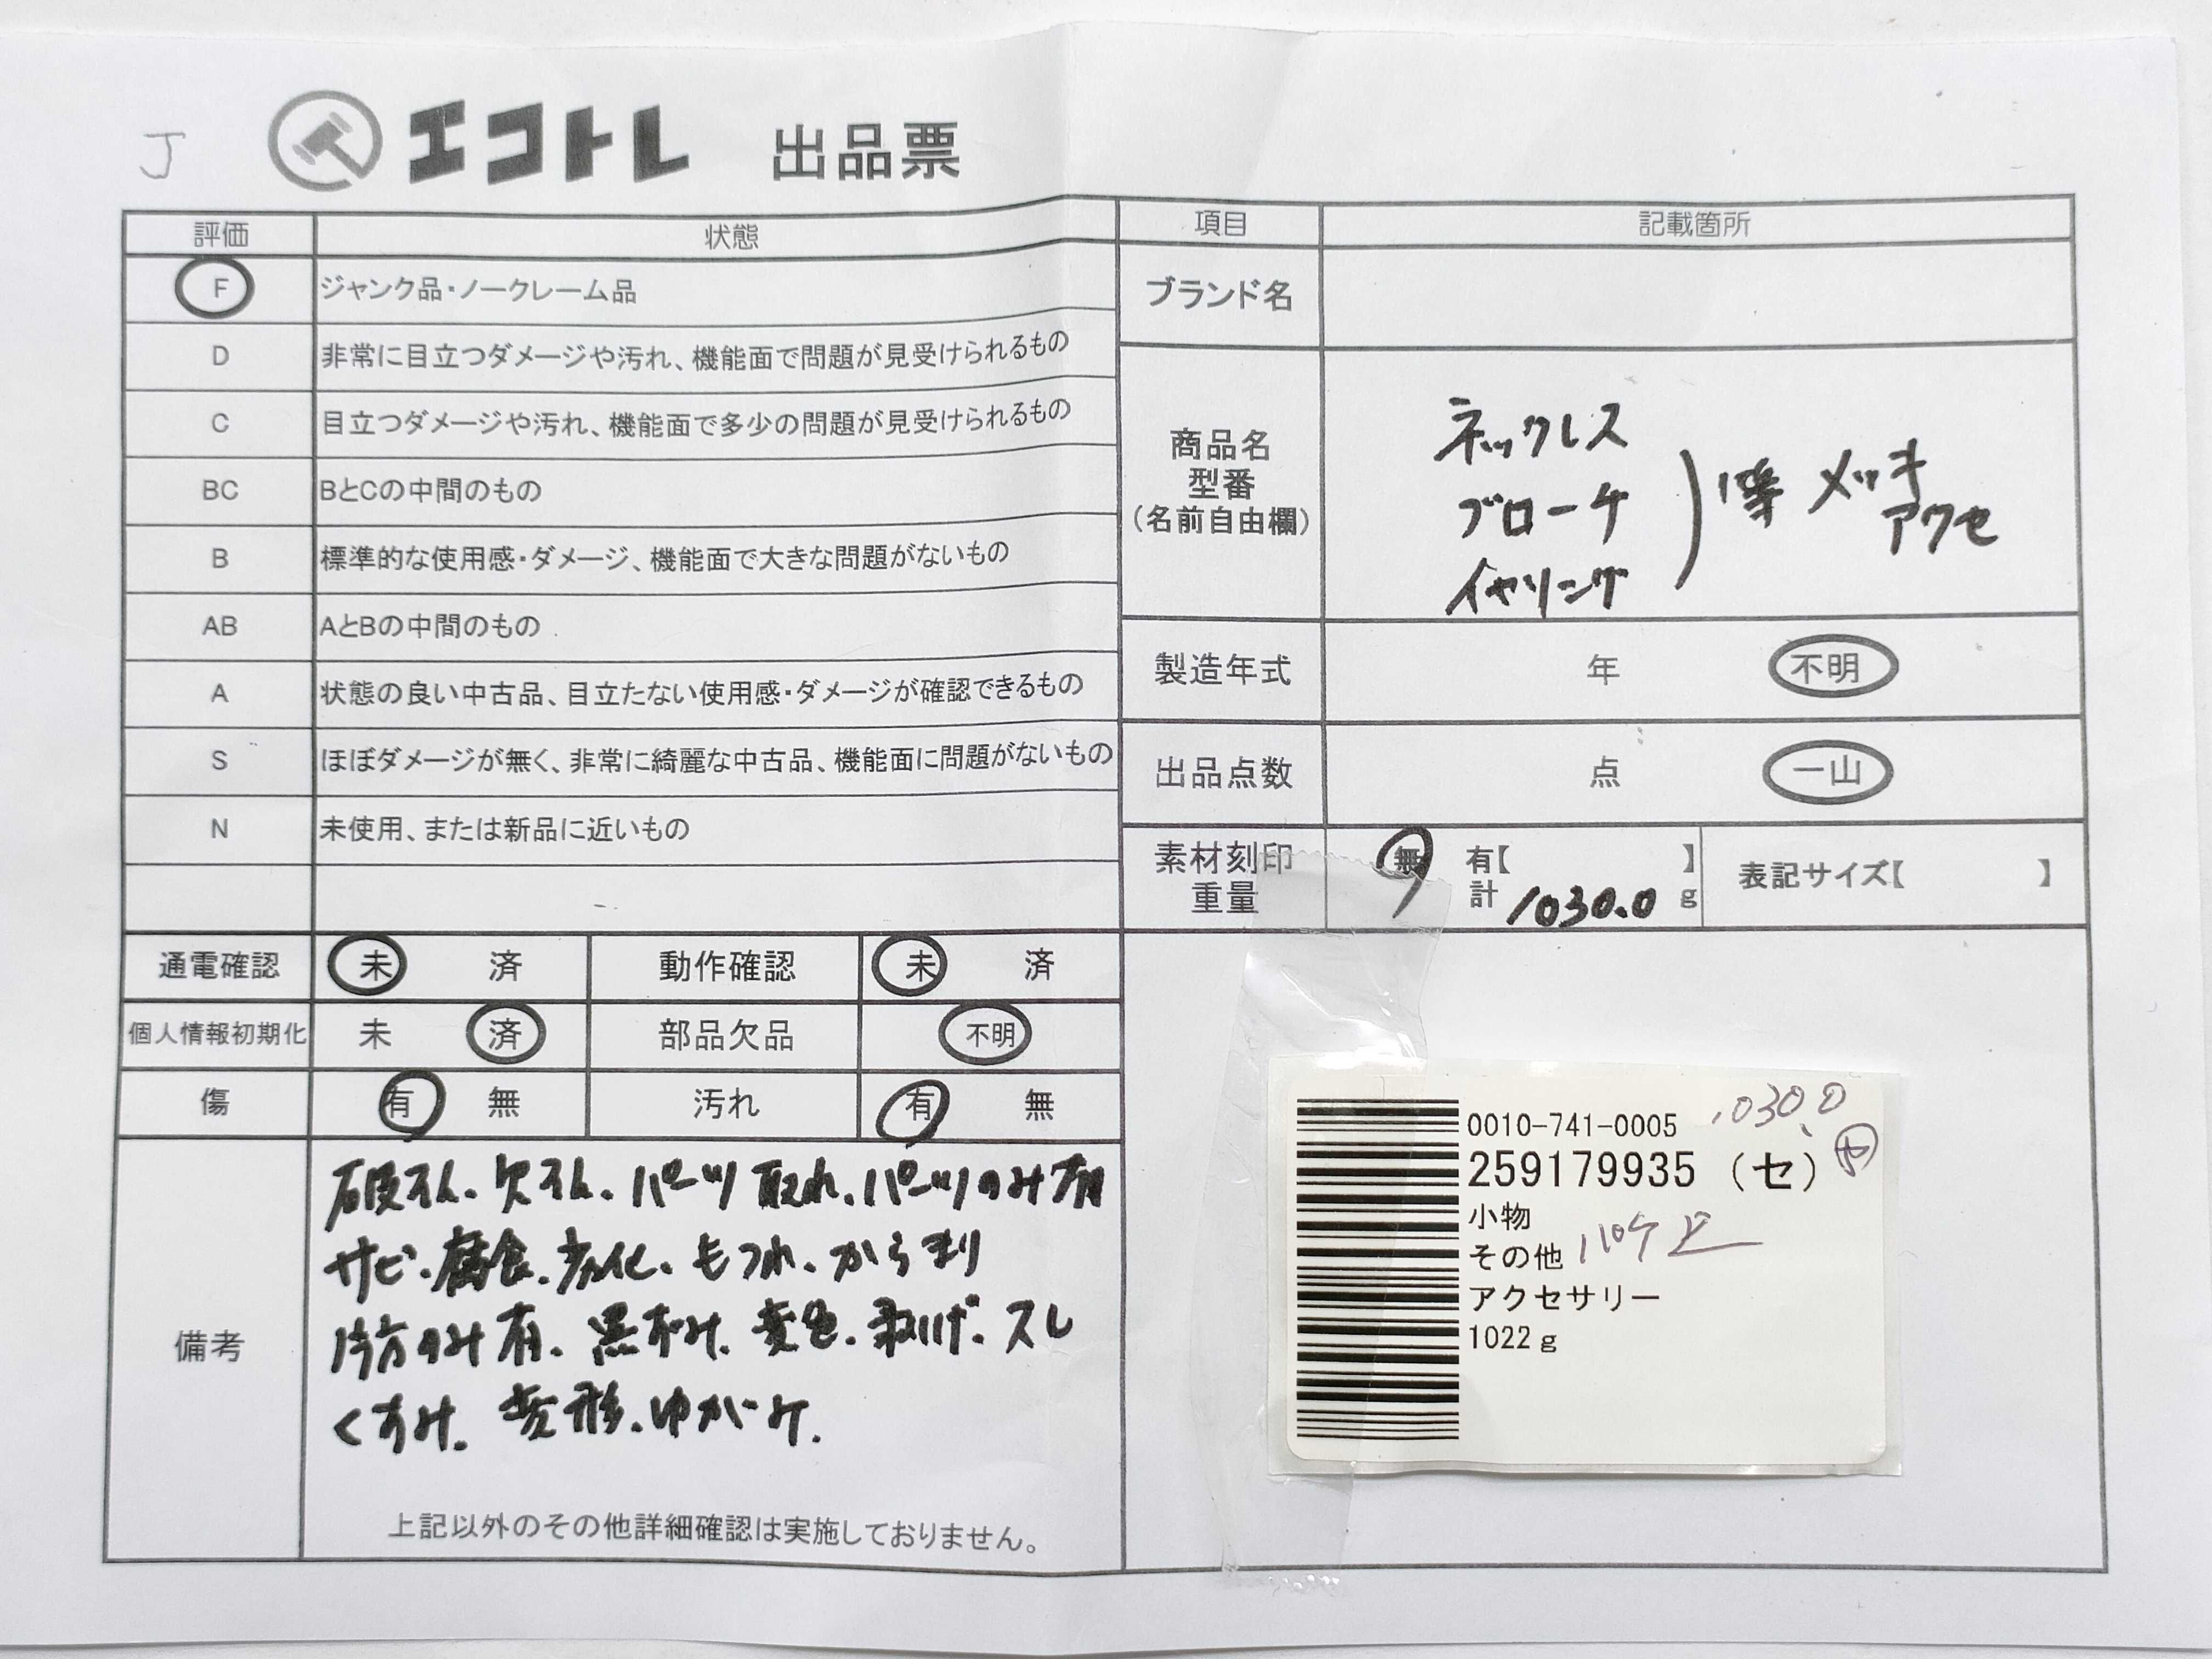 J
エコトレ 出品票
評価 状態
F ジャンク品・ノークレーム品
D 非常に目立つダメージや汚れ、機能面で問題が見受けられるもの
C 目立つダメージや汚れ、機能面で多少の問題が見受けられるもの
BC BとCの中間のもの
B 標準的な使用感・ダメージ、機能面で大きな問題がないもの
AB AとBの中間のもの
A 状態の良い中古品、目立たない使用感・ダメージが確認できるもの
S ほぼダメージが無く、非常に綺麗な中古品、機能面に問題がないもの
N 未使用、または新品に近いもの
通電確認 未 済 動作確認 未 済
個人情報初期化 未 済 部品欠品 不明
傷 有 無 汚れ 有 無
備考
破損、欠損、パーツ取れ、パーツのみ有
サビ、腐食、劣化、もつれ、からまり
片方のみ有、黒ずみ、変色、剥げ、スレ
くすみ、変形、ゆがみ、
上記以外のその他詳細確認は実施しておりません。
項目 記載箇所
ブランド名
商品名
型番
(名前自由欄)
ネックレス
ブローチ
イヤリング
等 メッキ
アクセ
製造年式 年 不明
出品点数 点 一山
素材刻印
重量
無 有【 】
計 1030.0 g
表記サイズ【 】
0010-741-0005 1030.0
259179935 (セ)
小物
その他
アクセサリー
1022g